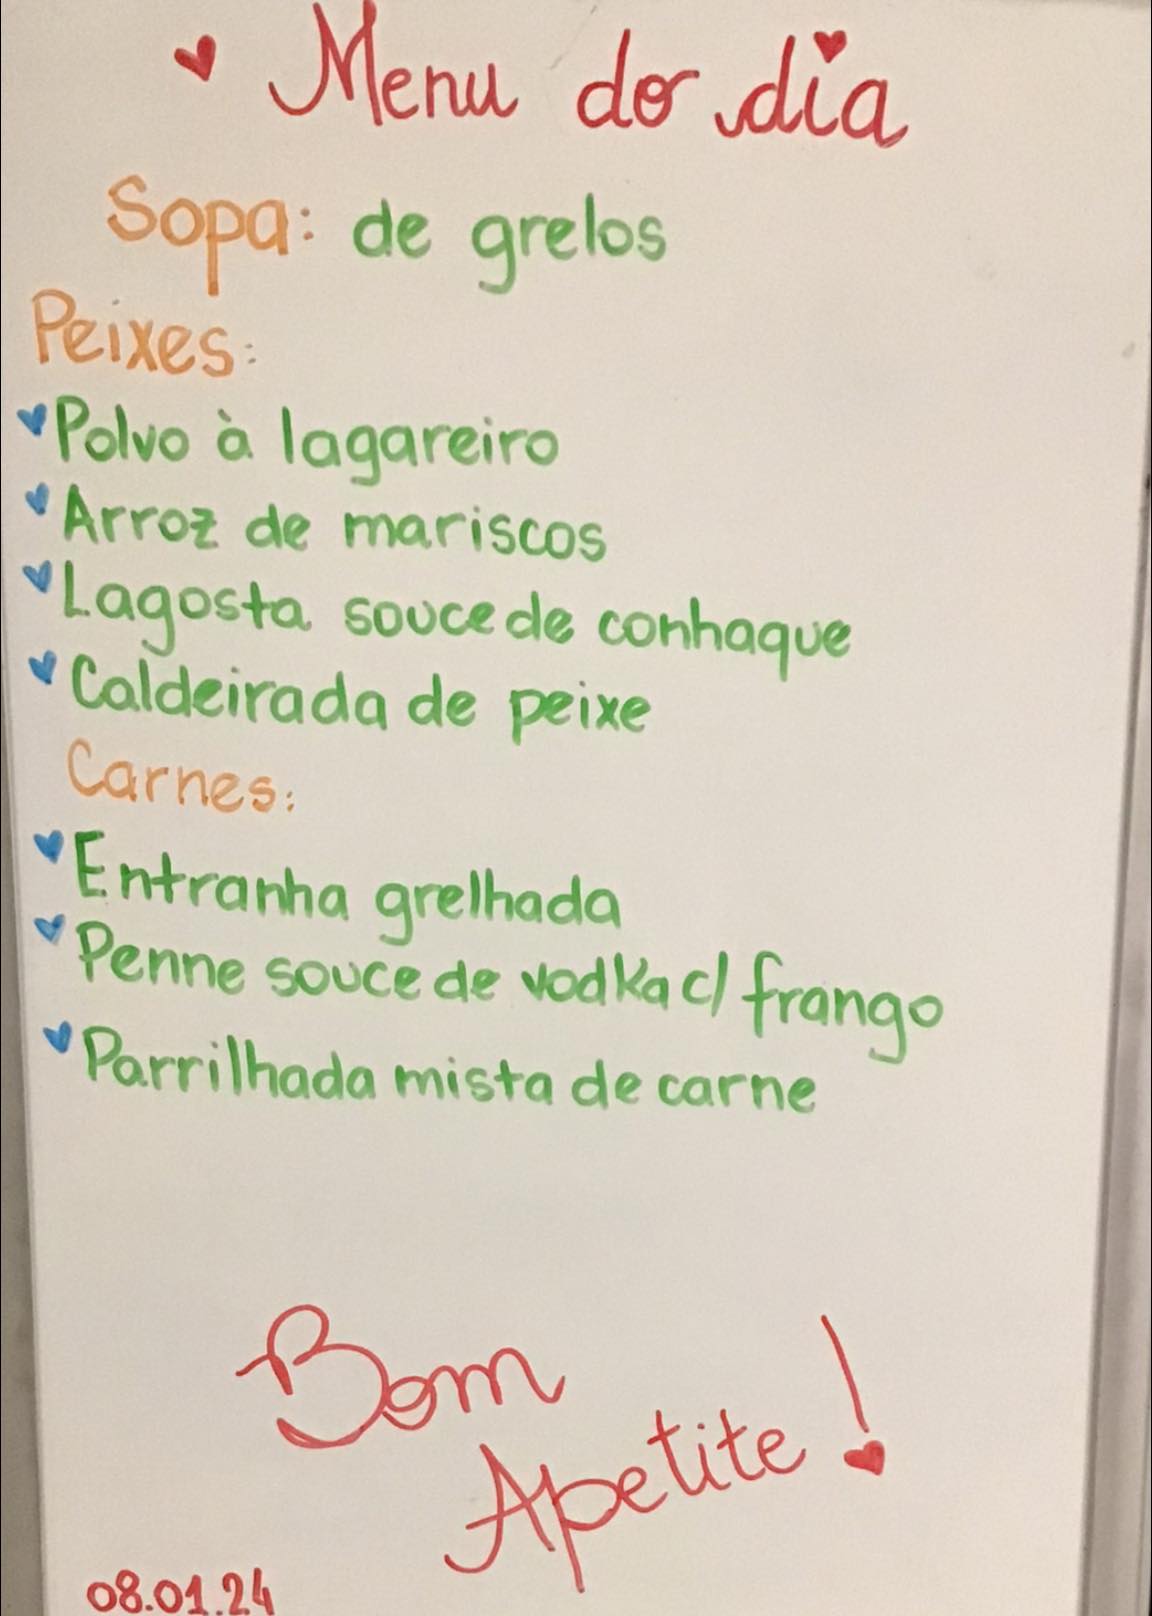 Menu do dia
Sopa: de grelos
Peixes:
Polvo à lagareiro
Arroz de mariscos
Lagosta souce de conhaque
Caldeirada de peixe
Carnes:
Entranha grelhada
Penne souce de vodka c/ frango
Parrilhada mista de carne
Bom
Apetite!
08.01.24